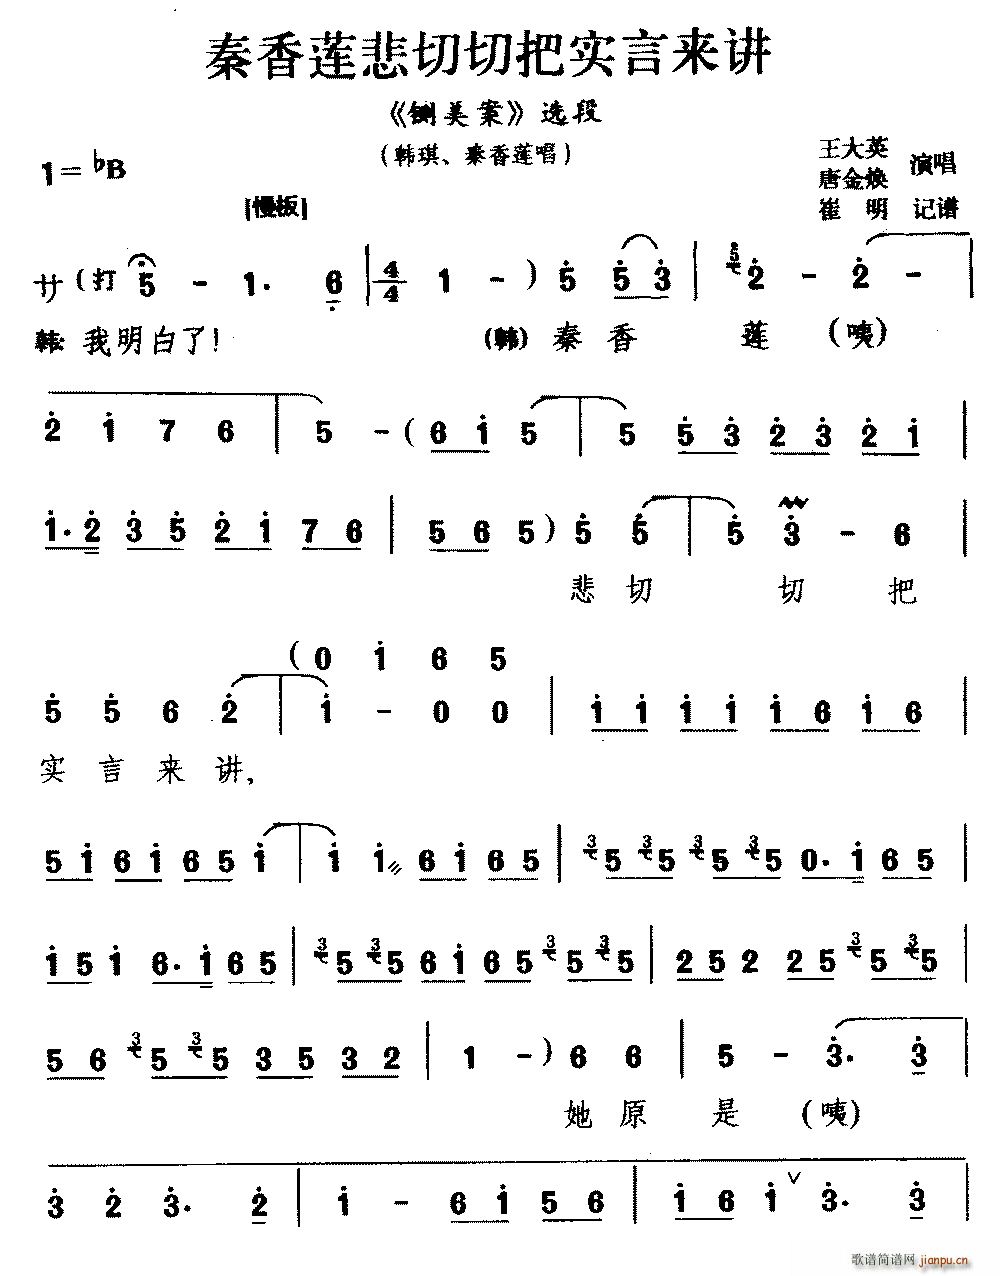 秦香莲悲切切把实言来讲
《铡美案》选段
(韩琪、秦香莲唱)
1=♭B
王大英
唐金焕 演唱
崔 明 记谱
[慢板]
サ (打 5 - 1. 6 | 4/4 1 - ) 5 5 3 | 2 - 2 - |
韩: 我明白了! (韩) 秦香 莲 (咦)
2 1 7 6 | 5 - ( 6 1 5 | 5 5 3 2 3 2 1 |
1. 2 3 5 2 1 7 6 | 5 6 5 ) 5 5 | 5 3 - 6 |
悲切 切 把
( 0 1 6 5
5 5 6 2 | 1 - 0 0 | 1 1 1 1 1 6 1 6 |
实 言 来 讲,
5 1 6 1 6 5 1 | 1 1 6 1 6 5 | 3 5 3 5 3 5 3 5 0. 1 6 5 |
1 5 1 6. 1 6 5 | 3 5 3 5 6 1 6 5 3 5 3 5 | 2 5 2 2 5 3 5 3 5
5 6 3 5 3 5 3 5 3 2 | 1 - ) 6 6 | 5 - 3. 3 |
她 原 是 (咦)
3 2 3. 2 | 1 - 6 1 5 6 | 1 6 1 ∨ 3. 3 |
歌谱简谱网 jianpu.cn